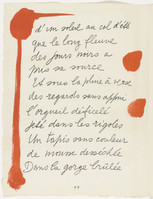 d'un soleil au col d'été
que le long fleuve
des jours noirs a
pris sa source
Et sous la pluie à verse
des regards sans appui
l'orgueil déficelé
jeté dans les rigoles
Un tapis sans couleur
de mousse desséchée
Dans la gorge brûlée